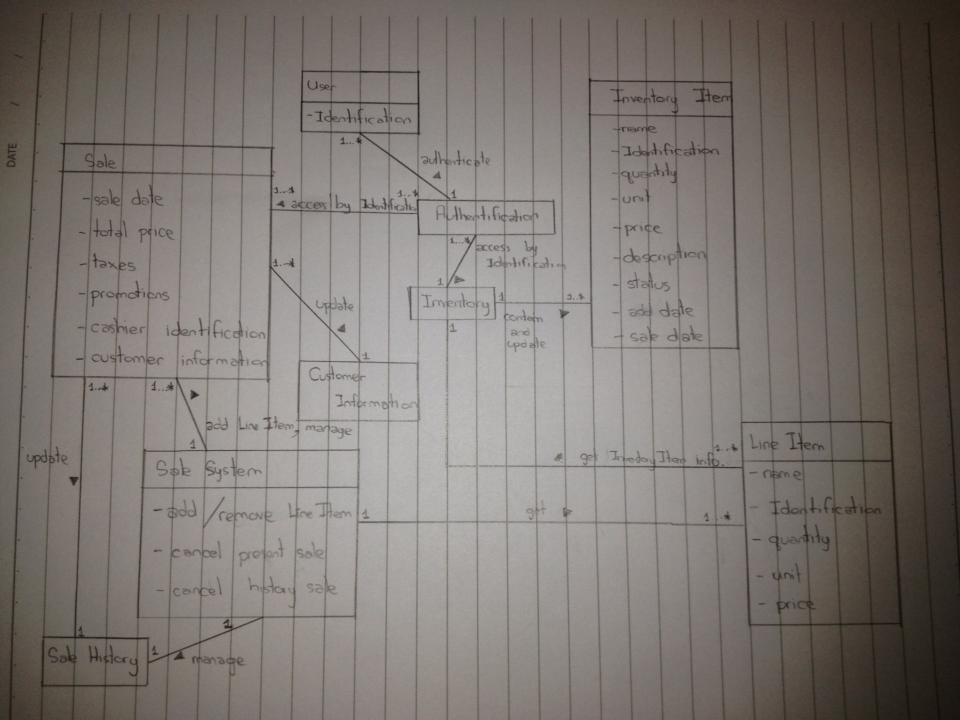 DATE
User
- Identification
1..*
authenticate
1
Inventory Item
- name
- Identification
- quantity
- unit
- price
- description
- status
- add date
- sale date
Sale
- sale date
- total price
- taxes
- promotions
- cashier identification
- customer information
1..*
1..*
access by Identificatio
Authentification
1..*
access by
Identification
1
Inventory
1
1..*
contain
and
update
1
1..*
update
1
Customer
Information
1..*
1..*
add Line Item, manage
1
update
Sale System
- add/remove Line Item
- cancel present sale
- cancel history sale
1
get
1..*
1..*
get Invedoy Item info.
Line Item
- name
- Identification
- quantity
- unit
- price
1
1
1
manage
Sale History